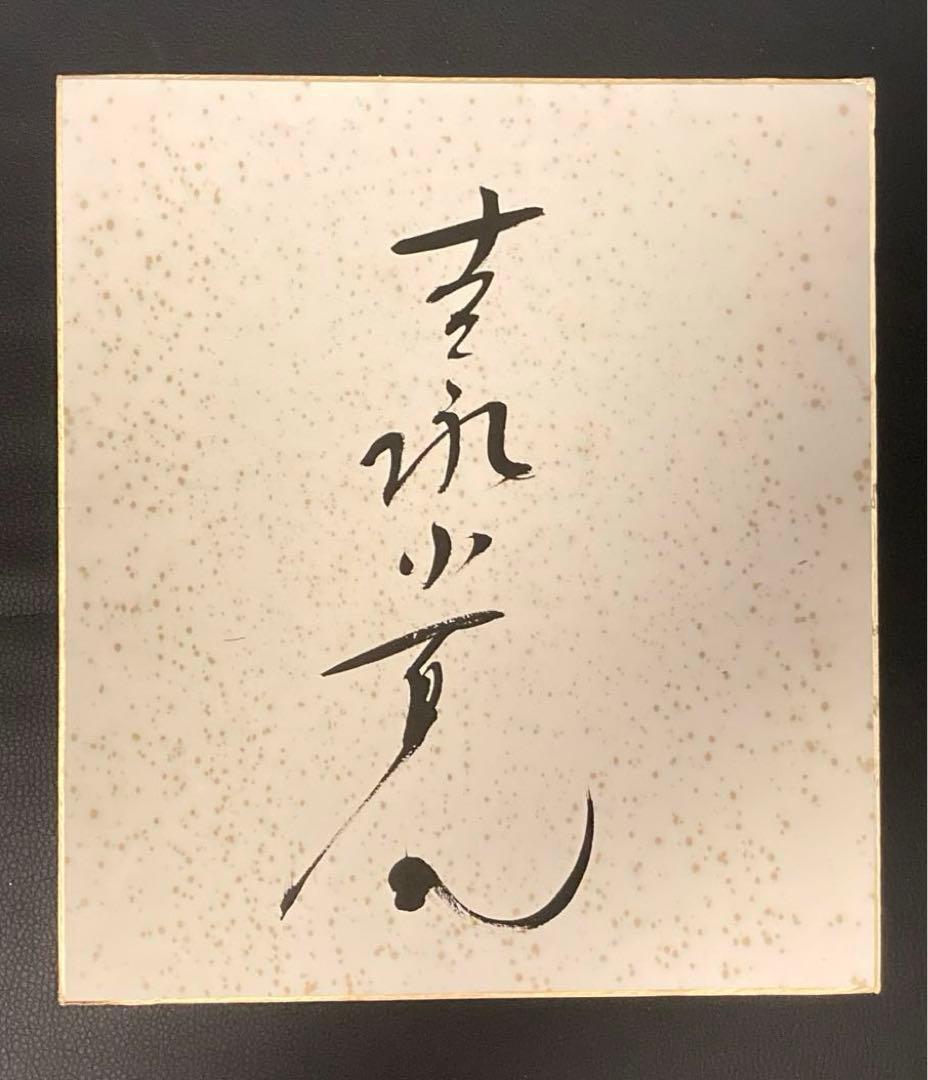 吉永小百合